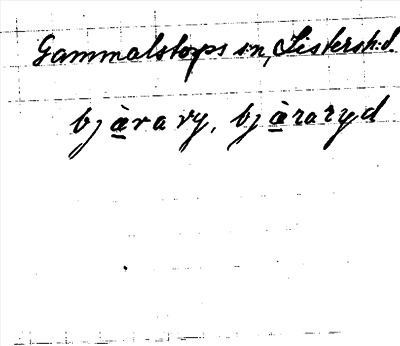 Gammalstorps sn, Listers hd.
bjàravy, bjàraryd